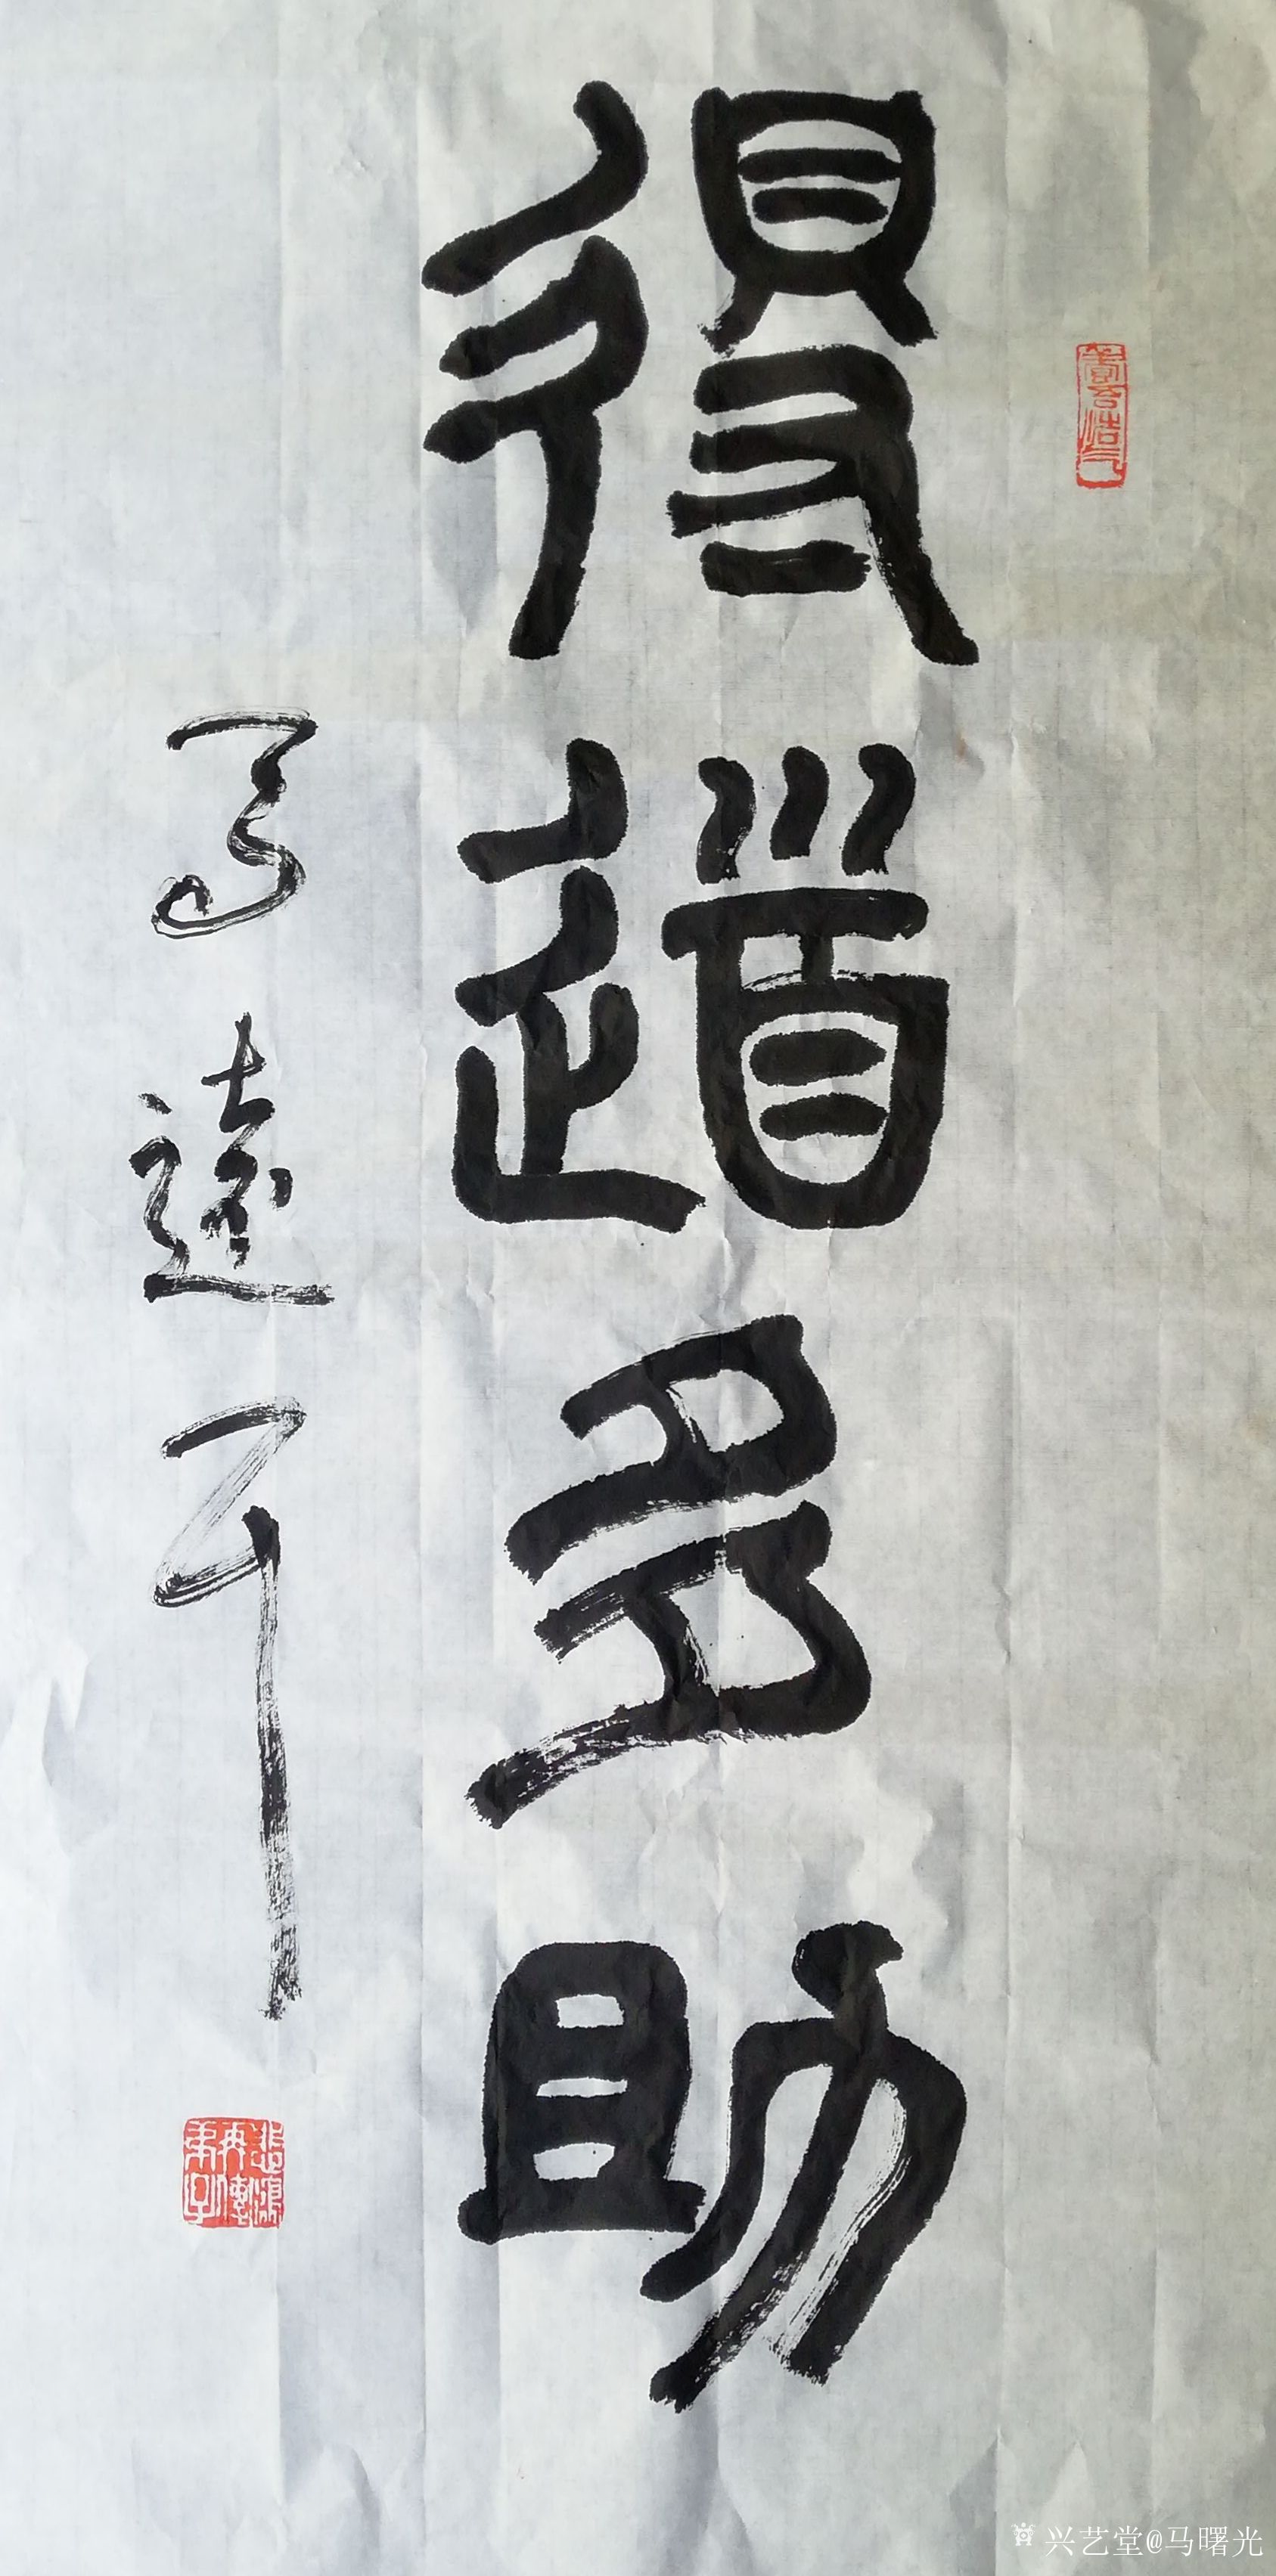 得道多助
马远平
兴艺堂@马曙光